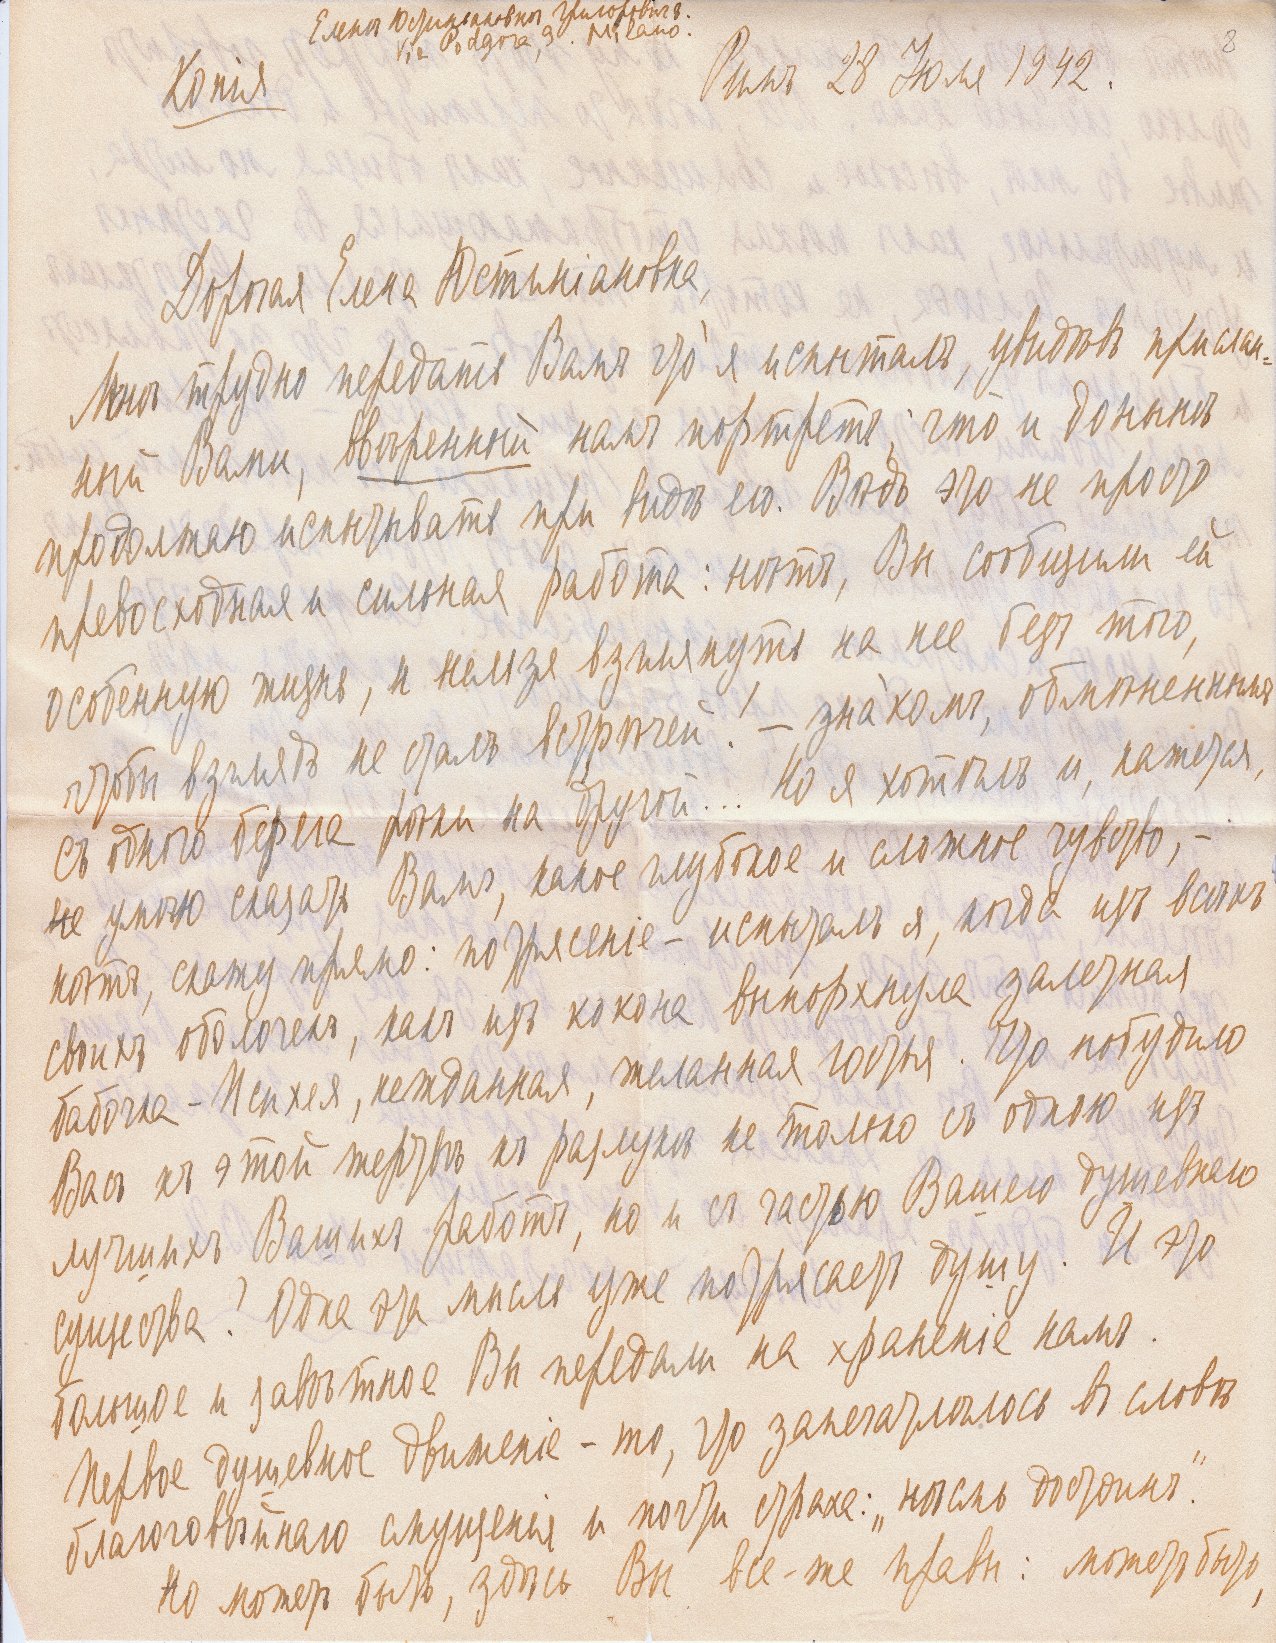 Елена Юстиніановна Григоровичъ.
Via Podgora, 9. Milano.
8
Копія
Римъ 28 Юля 1942.
Дорогая Елена Юстиніановна,
Мнѣ трудно передать Вамъ что я испыталъ, увидѣвъ прислан=
ный Вами, ввѣренный намъ портретъ; что и донынѣ
продолжаю испытывать при видѣ его. Вѣдь это не просто
превосходная и сильная работа: нѣтъ, Вы сообщили ей
особенную жизнь, и нельзя взглянуть на нее безъ того,
чтобы взглядъ не сталъ встрѣчей! – знакомъ, обмѣненнымъ
съ одного берега рѣки на другой... Но я хотѣлъ и, кажется,
не умѣю сказать Вамъ, какое глубокое и сложное чувство, –
нѣтъ, скажу прямо: потрясеніе – испыталъ я, когда изъ всѣхъ
своихъ оболочекъ, какъ изъ кокона выпорхнула залетная
бабочка – Психея, нежданная, желанная гостья. Что побудило
Васъ къ этой жертвѣ къ разлукѣ не только съ одною изъ
лучшихъ Вашихъ работъ, но и съ частью Вашего душевнаго
существа? Одна эта мысль уже потрясаетъ душу. И это
большое и завѣтное Вы передали на храненіе намъ.
Первое душевное движеніе – то, что запечатлѣлось въ словѣ
благоговѣйнаго смущенія и почти страха: „нѣсмь достоинъ".
Но может быть, здѣсь Вы все-же правы: можетъ быть,